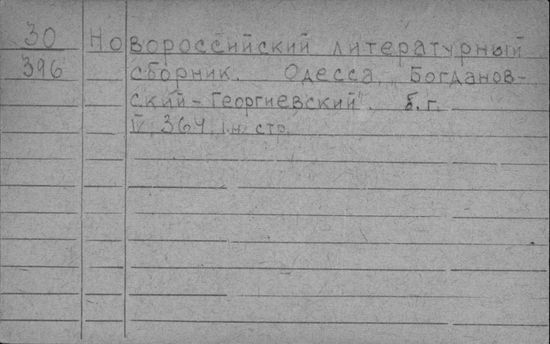 30 Новороссийский литературный
396 сборник. Одесса, Богданов-
ский-Георгиевский". б.г.
IV, 364, I н. стр.